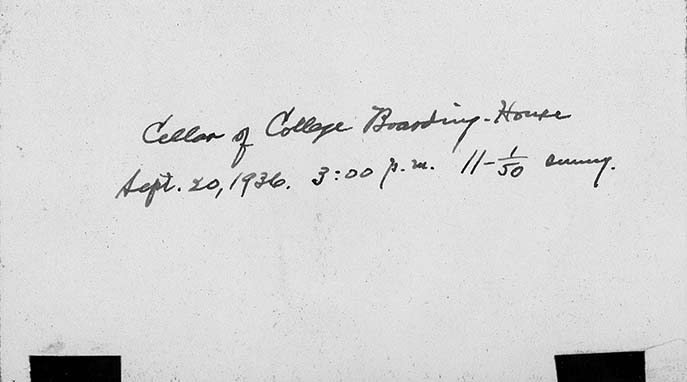 Cellar of College Boarding-House
Sept. 20, 1936. 3:00 p.m. 11-1/50 sunny.